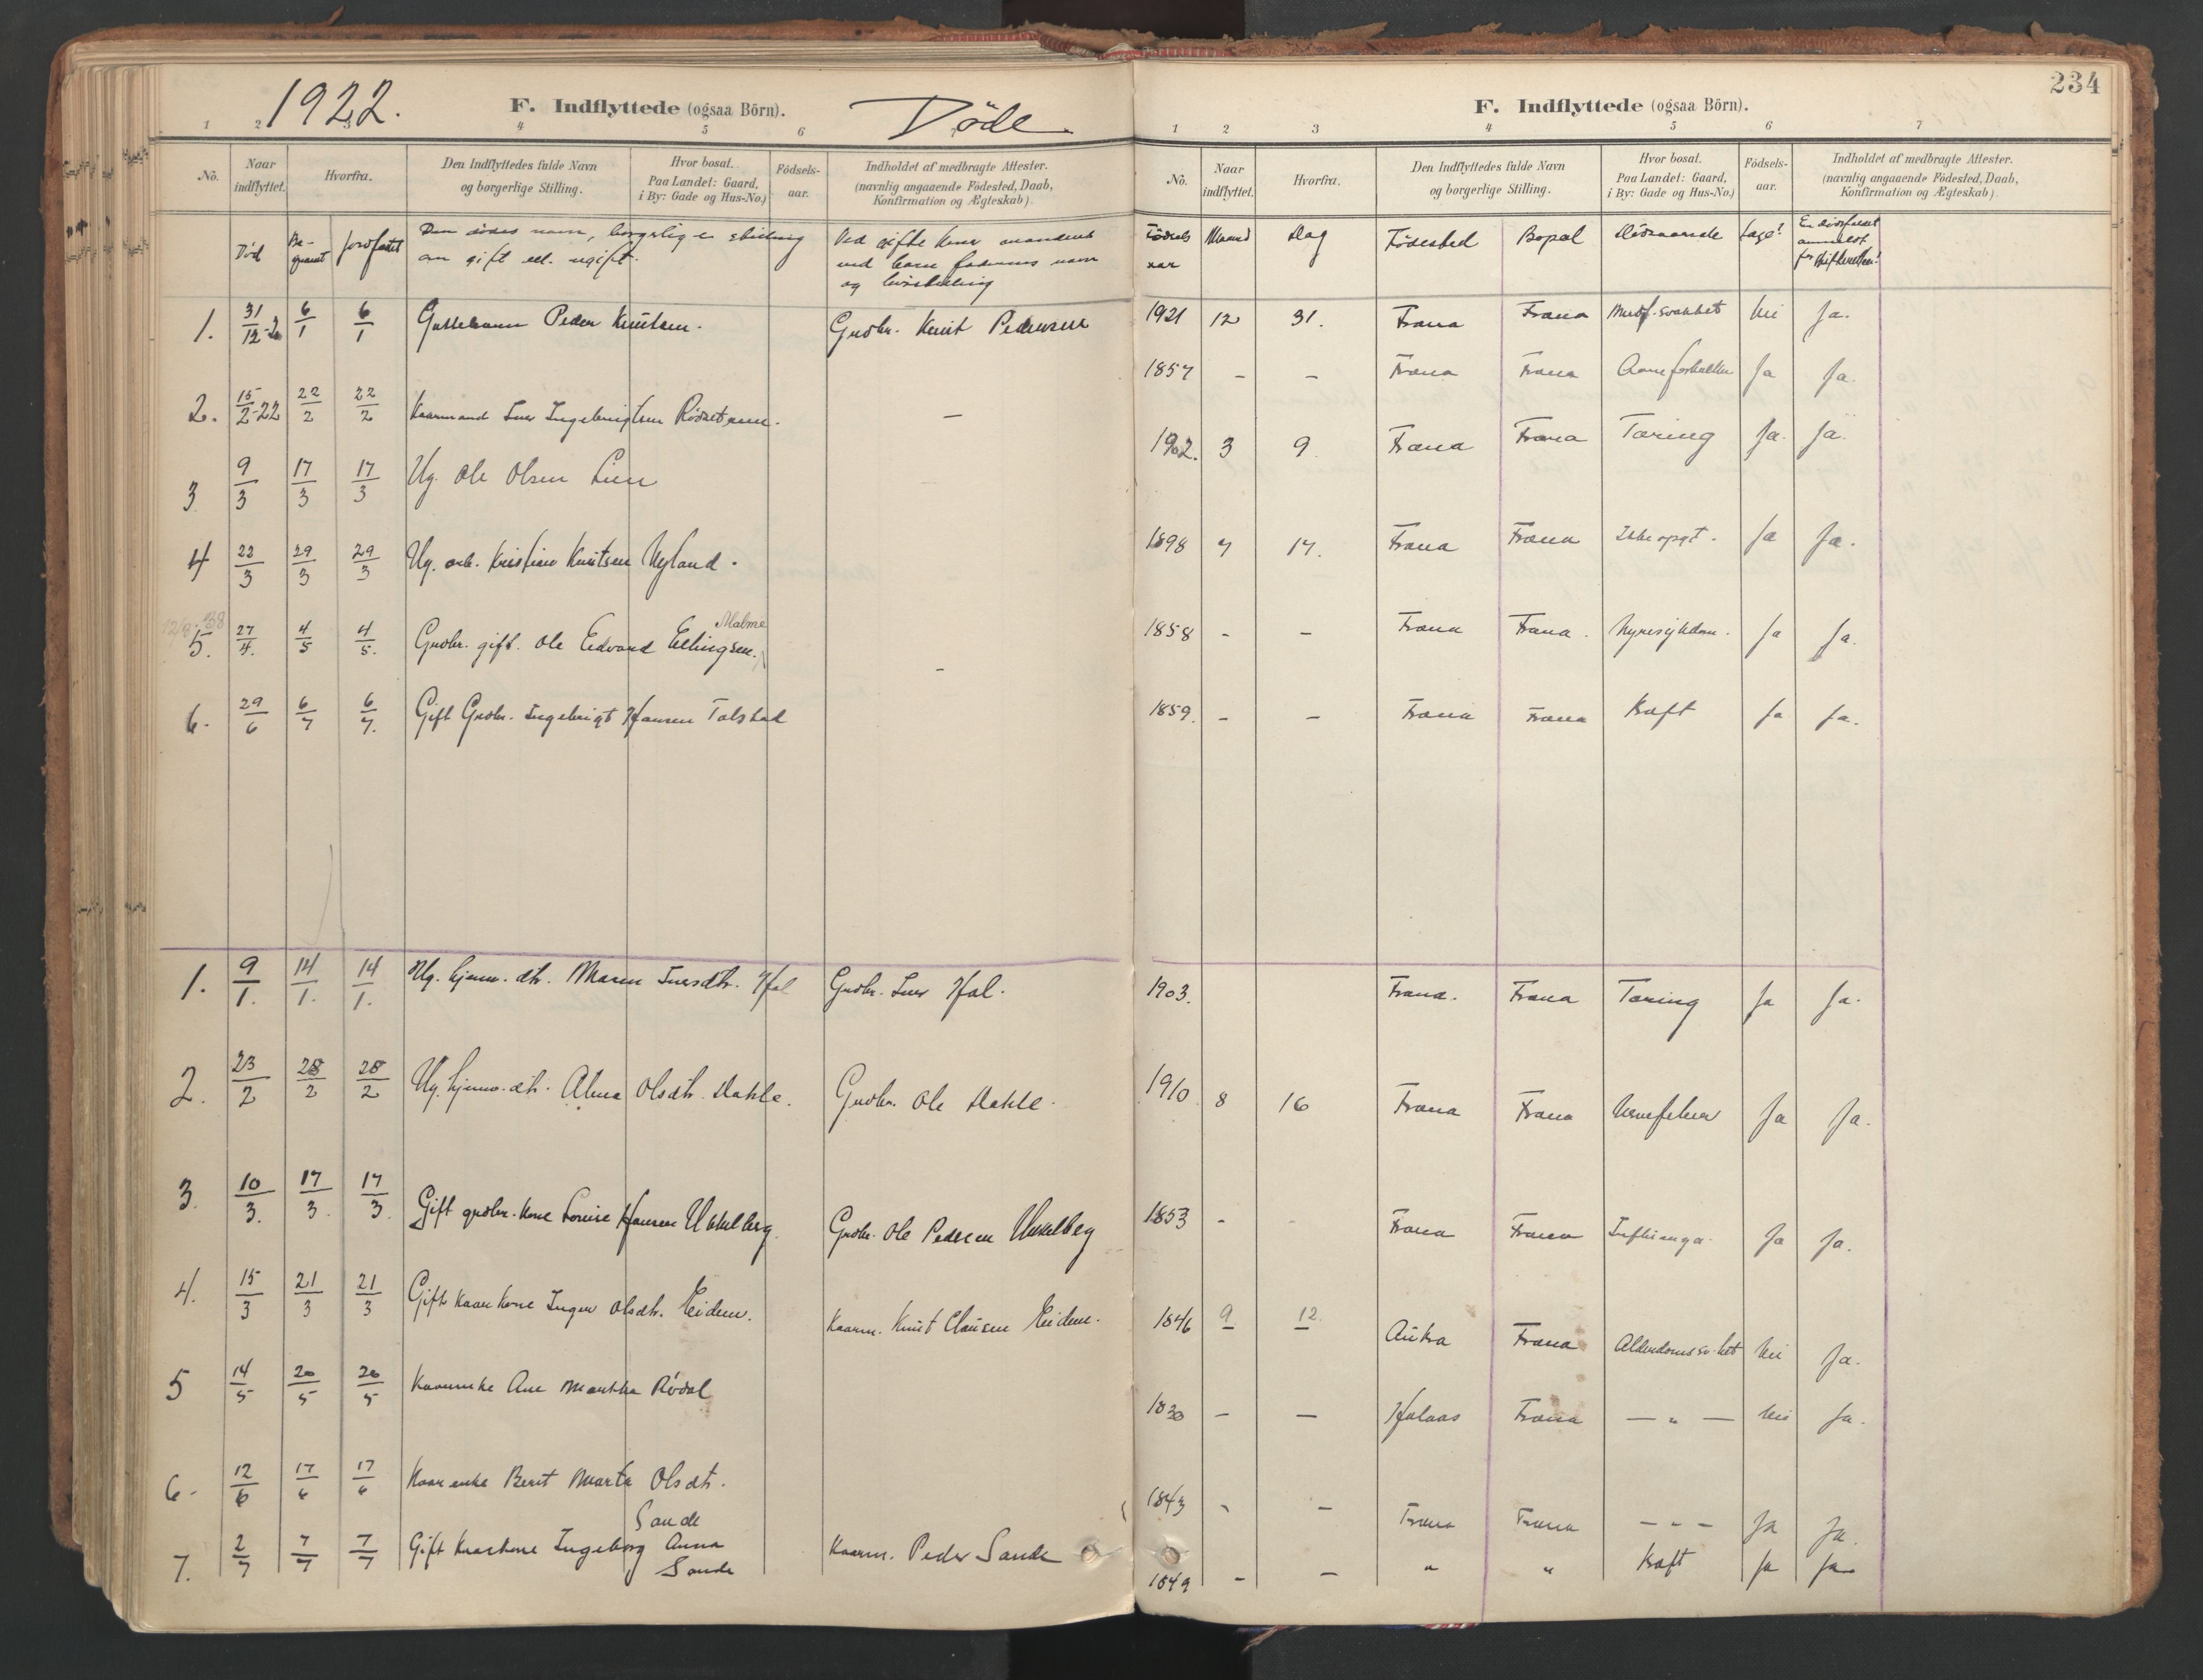 1922.
F. Indflyttede (ogsaa Börn).
Döde.
1 2 3 4 5 6
No.
Naar indflyttet.
Hvorfra.
Den Indflyttedes fulde Navn og borgerlige Stilling.
Hvor bosat. Paa Landet: Gaard, i By: Gade og Hus-No.)
Födsels-aar.
Indholdet af medbragte Attester. (navnlig angaaende Födested, Daab, Konfirmation og Ægteskab)
Död Be-gravet jordfæstet Den dödes navn, borgerlige stilling
om gift ell. ugift.
Ved gifte koner mandens
ved barn faderens navn
og livsstilling
1. 31/12-21 6/1 6/1 Guttebarn Peder Knutsen. Gaardbr. Knut Pedersen
2. 15/2-22 22/2 22/2 Kaarmand Iver Ingebrigtsen Rödsetmoen. —
3 9/3 17/3 17/3 Ug. Ole Olsen Lien
4 22/3 29/3 29/3 Ug. arb. Kristian Knutsen Nyland.
12/9-38
Malme
5. 27/4. 4/5 4/5. Grdbr. gift. Ole Edvard Ellingsen. -
6. 29/6 6/7 6/7. Gift Grdbr. Ingebrigt Hansen Tolstad
1. 9/1. 14/1. 14/1. Ug. hjemv. dtr. Maren Iversdtr. Hol Grdbr. Iver Hol.
2. 23/2 28/2 28/2 Ug. hjemv. dtr. Alma Olsdtr. Dahle. Grdbr. Ole Dahle.
3. 10/3. 17/3. 17/3. Gift grdbr. kone Louise Hansen Ukkelberg. Grdbr. Ole Pedersen Ukkelberg
4. 15/3 21/3 21/3 Gift Kaarkone Inger Olsdtr. Eidem. Kaarm. Knut Clausen Eidem.
5 14/5 20/5 20/5 Kaarenke Ane Martha Rödal
6. 12/6 17/6 17/6 Kaarenke Berit Marta Olsdtr.
Sande
7. 2/7 7/7 7/7 Gift Kaarkone Ingeborg Anna
Sande
Kaarm. Peder Sande
234
F. Indflyttede (ogsaa Börn).
1 2 3 4 5 6 7
No.
Naar indflyttet.
Hvorfra.
Den Indflyttedes fulde Navn og borgerlige Stilling.
Hvor bosat. Paa Landet: Gaard, i By: Gade og Hus-No.)
Födsels-aar.
Indholdet af medbragte Attester. (navnlig angaaende Födested, Daab, Konfirmation og Ægteskab).
Födsels aar Maaned Dag Födested Bopæl Dödsaarsak Læge? Er dödsfaldet anmeldt for Skifteretten?
1921 12 31. Fræna Fræna Medf. svakhet Nei Ja.
1857 - - Fræna Fræna Aareforkalkn Ja Ja.
1902. 3 9. Fræna Fræna Tæring Ja. Ja.
1898 7 17. Fræna Fræna Ikke opgt. Ja Ja.
1858 - - Fræna Fræna. Nyresykdom. Ja Ja.
1859. - - Fræna Fræna Kræft Ja Ja.
1903. Fræna. Fræna Tæring Ja Ja.
1910. 8 16 Fræna Fræna Nervefeber Ja Ja.
1853 - - Fræna Fræna Influenga Ja Ja.
1846 9 12. Aukra Fræna Alderdomssv.het Nei Ja.
1830 - - Holaas Fræna — „ — Nei Ja.
1843 - - Fræna Fræna - - - Ja Ja.
1849 - - „ „ Kræft Ja Ja